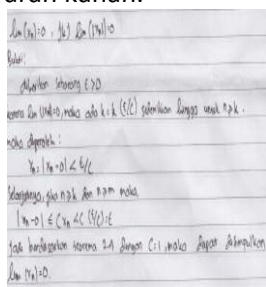 aran kanan.
lim (xn)=0, jhj lim (|xn|)=0
Bukti:
diberikan sebarang ε>0
karena lim (|xn|)=0, maka ada k = k (ε/c) sedemikian hingga untuk n≥k.
maka diperoleh :
Yn = |xn -0| < ε/c
Selanjutnya, jika n≥k dan n≥m maka
|xn -0| ≤ C Yn < C (ε/c) = ε
Jadi berdasarkan teorema 2.4 dengan C=1, maka dapat disimpulkan
lim (xn)=0.